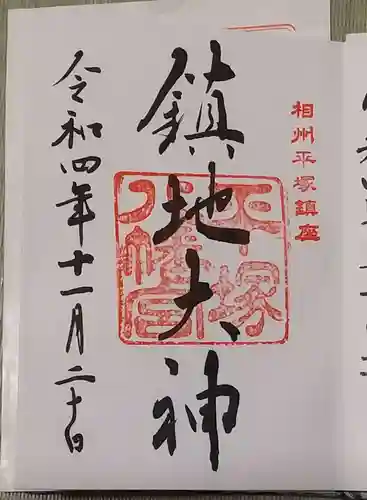 相州平塚鎮座
鎮地大神
平塚八幡宮
令和四年十一月二十日